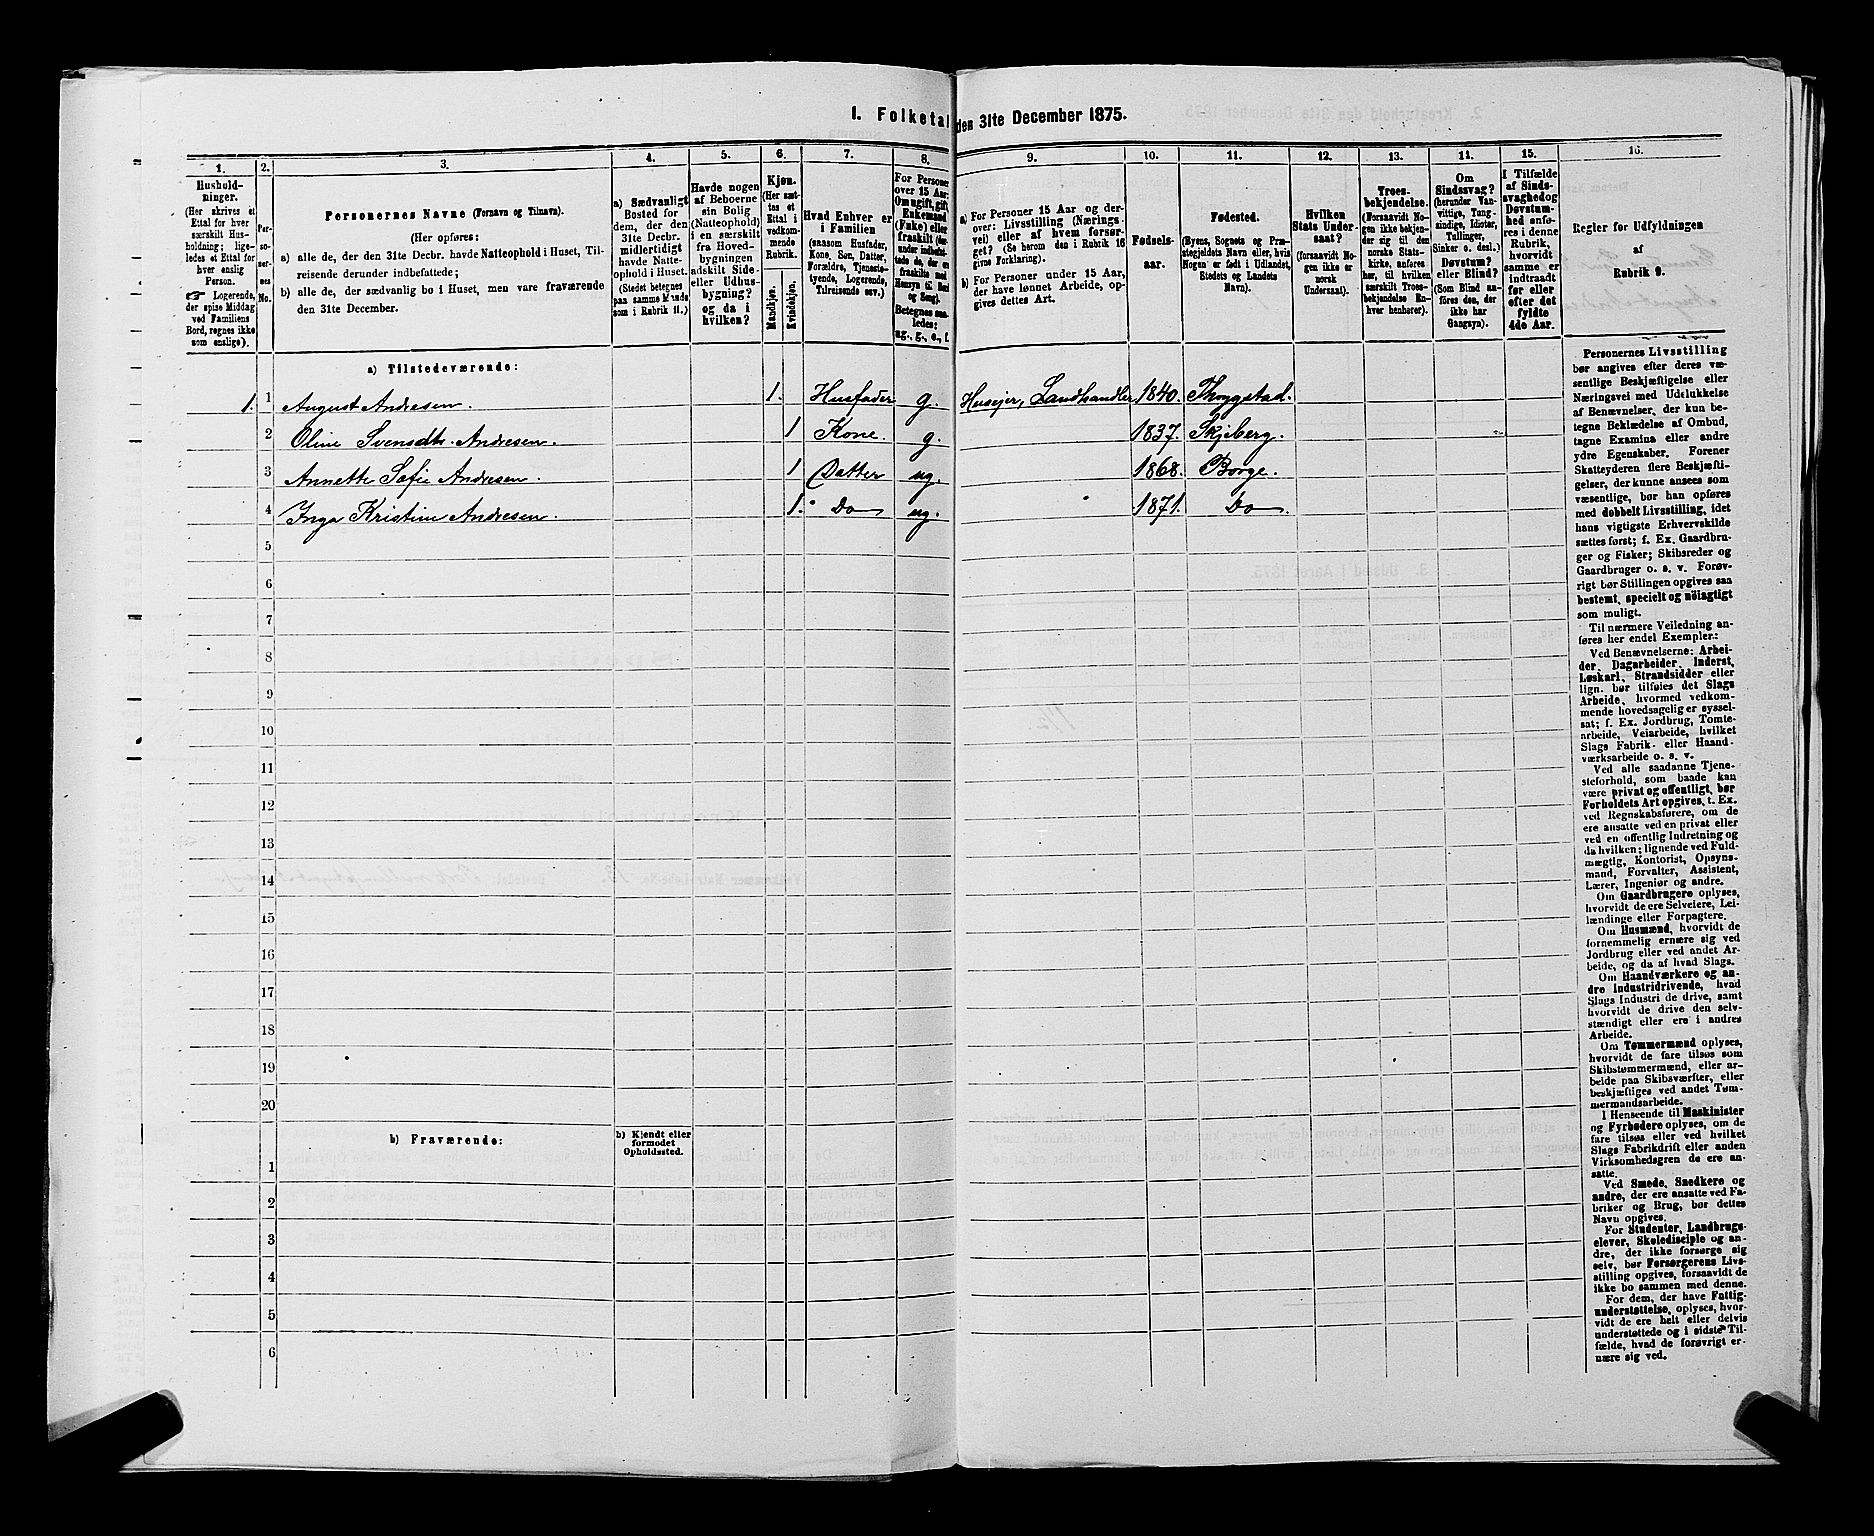 I. Folketal den 31te December 1875.
1. 2. 3. 4. 5. 6. 7. 8. 9. 10. 11. 12. 13. 14. 15. 16.
Hushold-
ninger.
(Her skrives et
Ettal for hver
særskilt Hus-
holdning; lige-
ledes et Ettal for
hver enslig
Person.
☞ Logerende,
der spise Middag
ved Familiens
Bord, regnes ikke
som enslige).
Per-
so-
ner-
nes
No.
Personernes Navne (Fornavn og Tilnavn).
(Her opføres:
a) alle de, der den 31te Decbr. havde Natteophold i Huset, Til-
reisende derunder indbefattede;
b) alle de, der sædvanlig bo i Huset, men vare fraværende
den 31te December.
a) Sædvanligt
Bosted for
dem, der den
31te Decbr.
midlertidigt
havde Natte-
ophold i Huset.
(Stedet betegnes
paa samme Maade
som i Rubrik 11.)
Havde nogen
af Beboerne
sin Bolig
(Natteophold)
i en særskilt
fra Hoved-
bygningen
adskilt Side-
eller Udhus-
bygning?
og da i
hvilken?
Kjøn.
(Her sæt-
tes et
Ettal i
vedkom-
mende
Rubrik.
Mandkjøn.
Kvindekjøn.
Hvad Enhver er
i Familien
(saasom Husfader,
Kone, Søn, Datter,
Forældre, Tjeneste-
tyende, Logerende,
Tilreisende osv.)
For Personer
over 15 Aar:
Om ugift, gift,
Enkemand
(Enke) eller
fraskilt (der-
under indbefat-
tede de, der ere
fraskilte med
Hensyn til Bord
og Seng).
Betegnes saa-
ledes:
ug., g., e., f.
a) For Personer 15 Aar og der-
over: Livsstilling (Nærings-
vei) eller af hvem forsør-
get? (Se herom den i Rubrik 16
givne Forklaring).
b) For Personer under 15 Aar,
der have lønnet Arbeide, op-
gives dettes Art.
Fødsels-
aar.
Fødested.
(Byens, Sognets og Præ-
stegjeldets Navn eller, hvis
Nogen er født i Udlandet,
Stedets og Landets
Navn).
Hvilken
Stats Under-
saat?
(forsaavidt No-
gen ikke er
norsk
Undersaat).
Troes-
bekjendelse.
(Forsaavidt No-
gen ikke bekjen-
der sig til den
norske Stats-
kirke, anføres
her, til hvilken
særskilt Troes-
bekjendelse En-
hver henhører).
Om
Sindssvag?
(herunder Van-
vittige, Tung-
sindige, Idioter,
Tullinger,
Sinker o. desl.)
Døvstum?
eller Blind?
(Som Blind an-
føres den, der
ikke har
Gangsyn).
I Tilfælde
af Sinds-
svaghed og
Døvstum-
hed anfø-
res i denne
Rubrik,
hvorvidt
samme er
indtraadt
før eller
efter det
fyldte
4de Aar.
Regler for Udfyldningen
af
Rubrik 9.
a) Tilstedeværende:
1. 1 August Andresen. 1. Husfader g. Huseier, Landhandler 1840. Throgstad.
2 Oline Svensdtr. Andresen. 1 Kone. g. 1837. Skjeberg.
3 Annette Sofie Andresen. 1 Datter ug. 1868. Borge.
4 Inga Kristine Andresen. 1. Do ug. 1871. Do
5
6
7
8
9
10
11
12
13
14
15
16
17
18
19
20
b) Fraværende:
b) Kjendt eller
formodet
Opholdssted.
1
2
3
4
5
6
Personernes Livsstilling
bør angives efter deres væ-
sentlige Beskjæftigelse eller
Næringsvei med Udelukkelse
af Benævnelser, der kun be-
tegne Beklædelse af Ombud,
tagne Examina eller andre
ydre Egenskaber. Forener
Skatteyderen flere Beskjæfti-
gelser, der kunne ansees som
væsentlige, bør han opføres
med dobbelt Livsstilling, idet
hans vigtigste Erhvervskilde
sættes først; f. Ex. Gaardbru-
ger og Fisker; Skibsreder og
Gaardbruger o. s. v. Forøv-
rigt bør Stillingen opgives saa
bestemt, specielt og nöiagtigt
som muligt.
Til nærmere Veiledning an-
føres her endel Exempler.:
Ved Benævnelserne: Arbei-
der, Dagarbeider, Inderst,
Løskarl, Strandsidder eller
lign. bør tilføies det Slags
Arbeide, hvormed vedkom-
mende hovedsagelig er syssel-
sat; f. Ex. Jordbrug, Tomte-
arbeide, Veiarbeide, hvilket
Slags Fabrik- eller Haand-
værksarbeide o. s. v.
Ved alle saadanne Tjene-
steforhold, som baade kan
være privat og offentligt, bør
Forholdets Art opgives, t. Ex.
ved Regnskabsførere, om de
ere ansatte ved en privat eller
ved en offentlig Indretning og
da hvilken; lignende ved Fuld-
mægtig, Kontorist, Opsyns-
mand, Forvalter, Assistent,
Lærer, Ingeniør og andre.
Om Gaardbrugere oplyses,
hvorvidt de ere Selveiere, Lei-
lændinge eller Forpagtere.
Om Husmænd, hvorvidt de
fornemmelig ernære sig ved
Jordbrug eller ved andet Ar-
beide, og da af hvad Slags.
Om Haandværkere og an-
dre industridrivende, hvad
Slags Industri de drive, samt
hvorvidt de drive den selv-
stændigt eller ere i andres
Arbeide.
Om Tømmermænd oplyses,
hvorvidt de fare tilsøs som
Skibstømmermænd, eller ar-
beide paa Skibsværfter, eller
beskjæftiges ved andet Tøm-
mermandsarbeide.
I Henseende til Maskinister
og Fyrbødere oplyses, om de
fare tilsøs eller ved hvilket
Slags Fabrikdrift eller anden
Virksomhedsgren de ere an-
satte.
Ved Smede, Snedkere og
andre, der ere ansatte ved Fa-
briker og Brug, bør dettes
Navn opgives.
For Studenter, Landbrugs-
elever, Skoledisciple og an-
dre, der ikke forsørge sig
selv, bør Forsørgerens Livs-
stilling opgives, forsaavidt de
ikke bo sammen med denne.
For dem, der have Fattig-
understøttelse, oplyses, hvor-
vidt de ere helt eller delvis
understøttede og i sidste Til-
fælde, hvad de forøvrigt er-
nære sig ved.